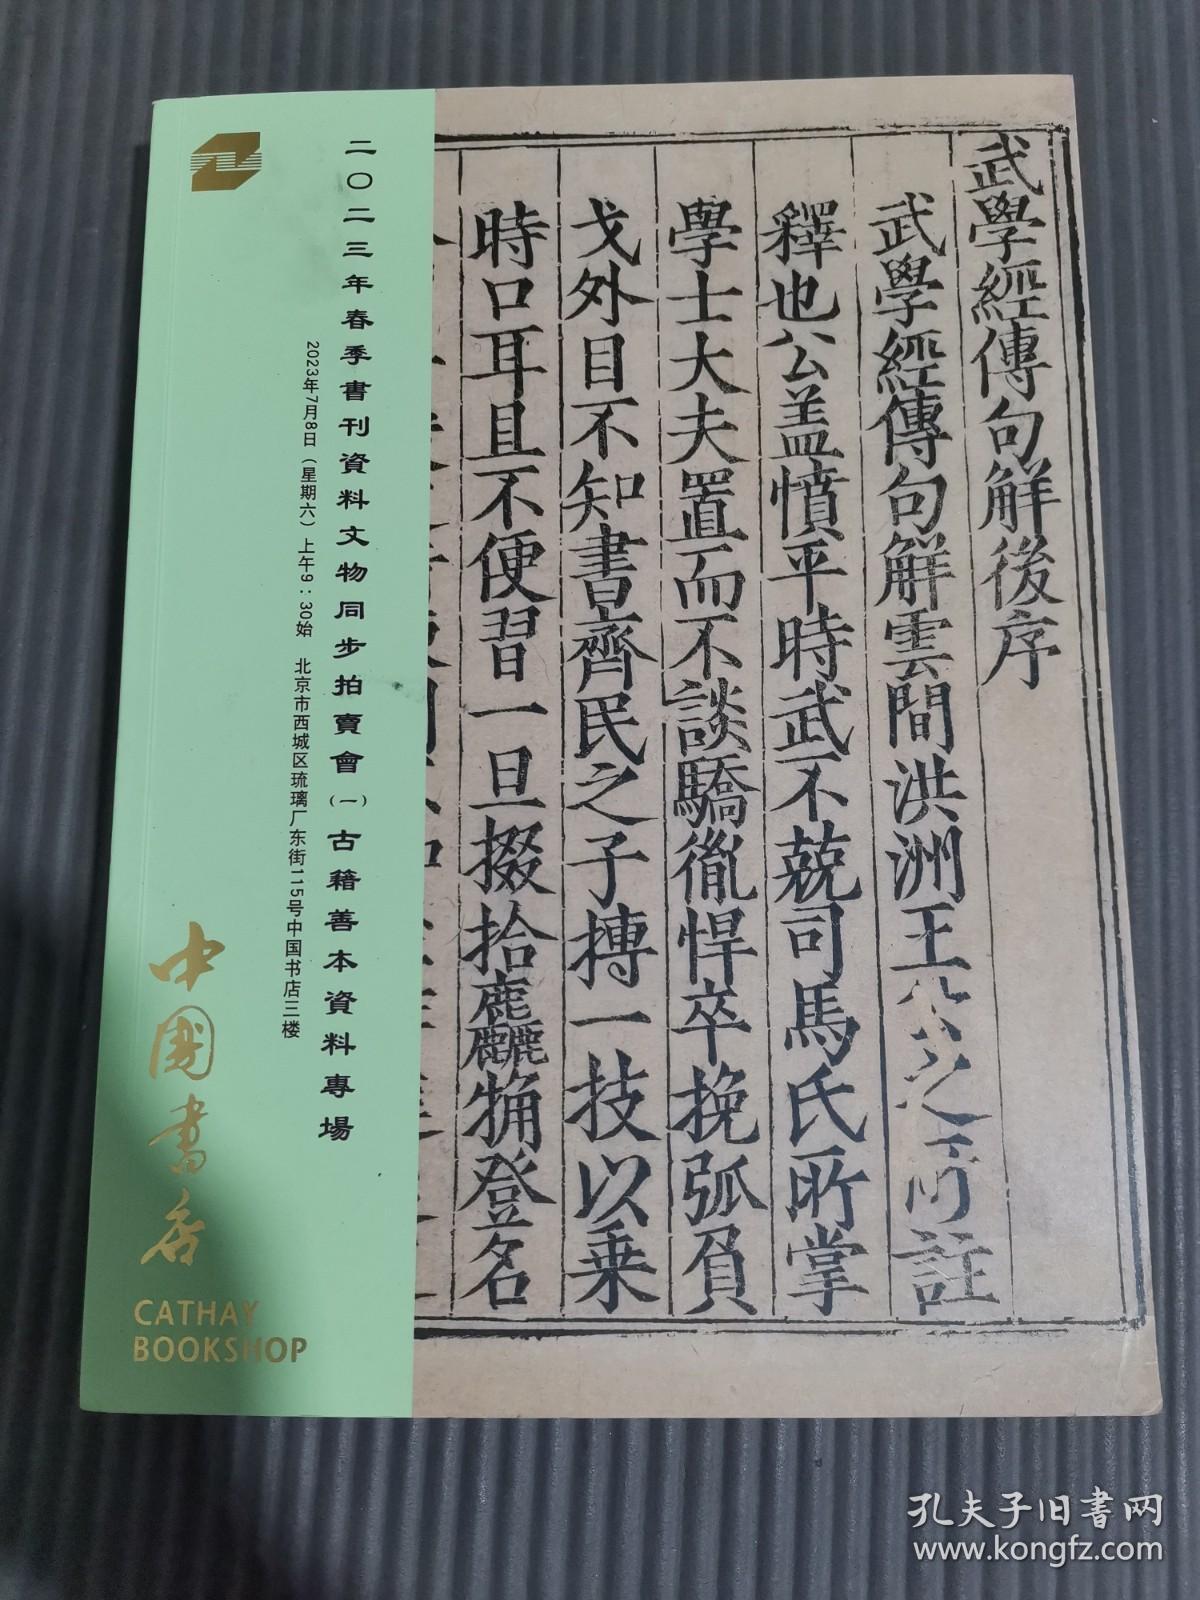 武學經傳句解後序
武學經傳句解雲間洪洲王公之所註
釋也公盖憤平時武不兢司馬氏所掌
學士大夫置而不談驕衛悍卒挽弧負
戈外目不知書齊民之子搏一技以乗
時口耳且不便習一旦掇拾麤觕登名
二〇二三年春季書刊資料文物同步拍賣會（一）古籍善本資料專場
2023年7月8日（星期六）上午9：30始 北京市西城区琉璃厂东街115号中国书店三楼
中國書店
CATHAY
BOOKSHOP
孔夫子旧书网
www.kongfz.com